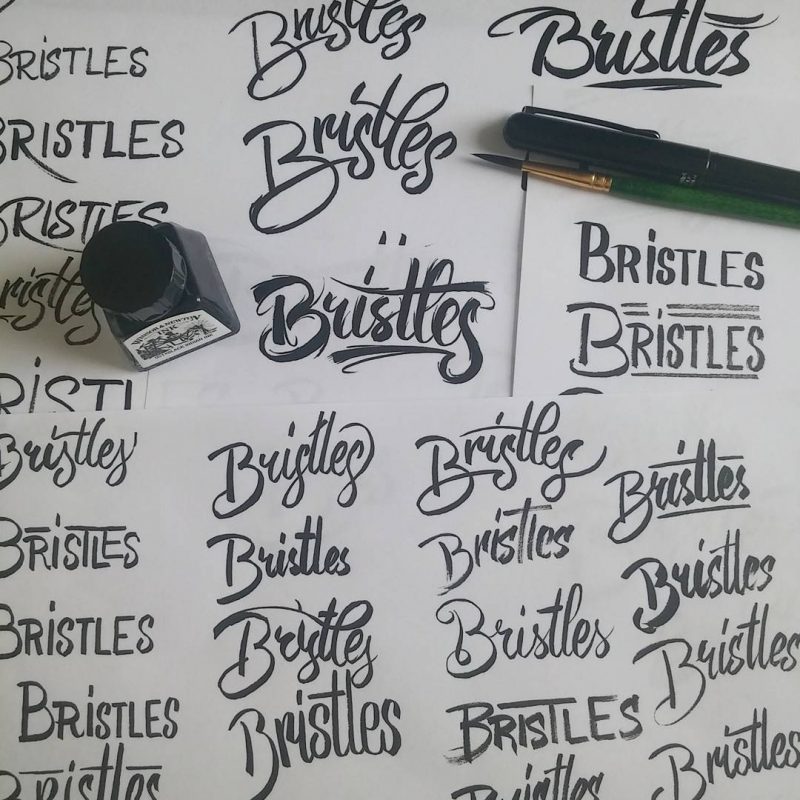 Bristles
Bristles
BRiSTLES
BRISTLES
Bristles
BRISTLES
Bristles
Bristles
BRiSTLES
WINSOR & NEWTON
INK
BRiSTLES
BRiSTL
Bristles
Bristles
Bristles
Bristles
BRiSTLES
Bristles
Bristles
Bristles
BRiSTLES
Bristles
Bristles
Bristles
BRiSTLES
Bristles
BRiSTLES
Bristles
Bristles
Bristles
Bristles